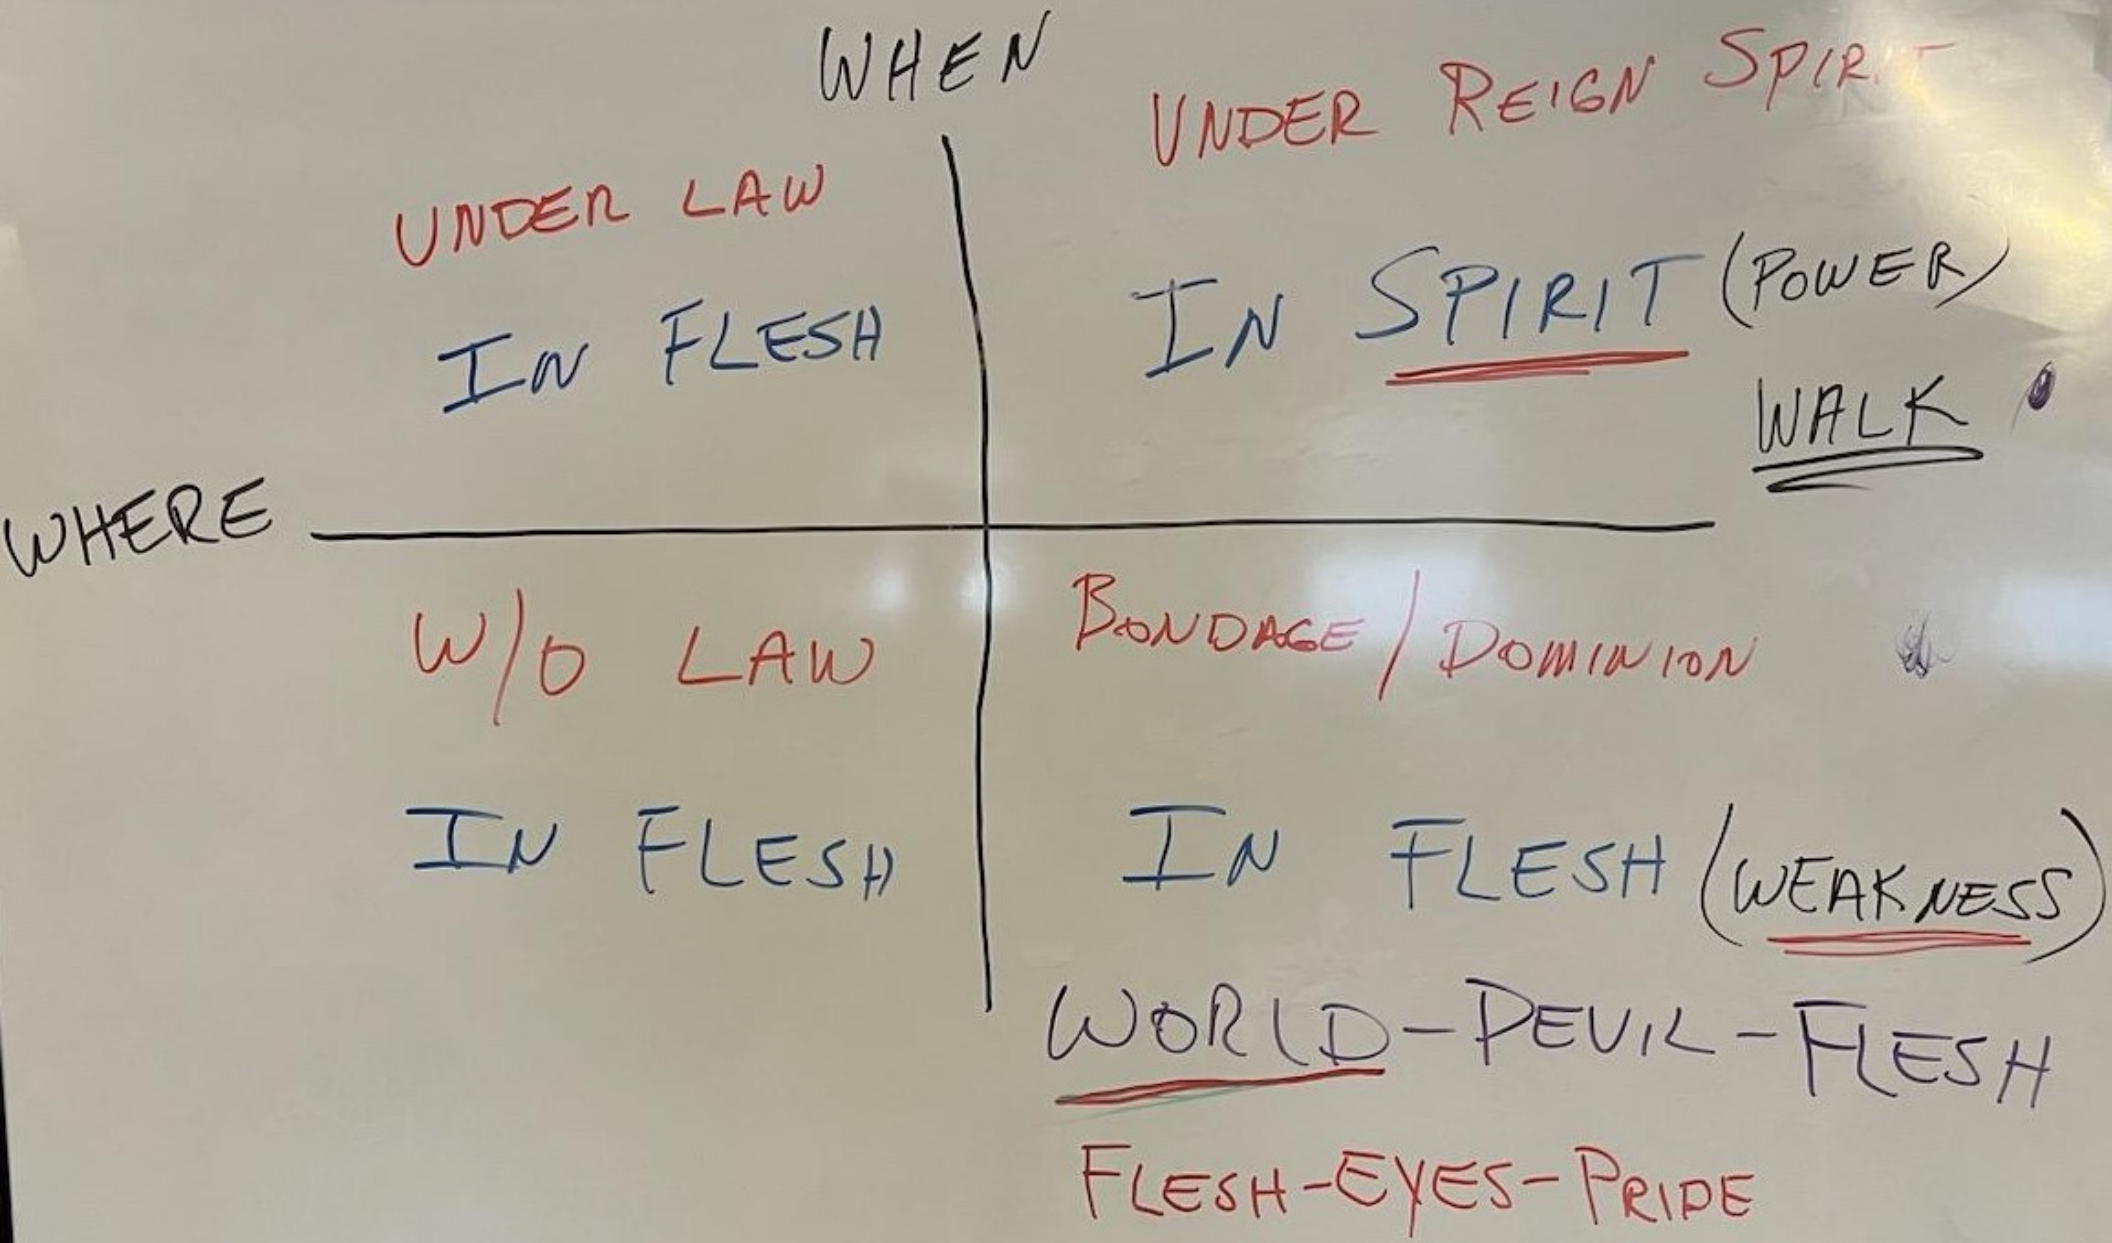 WHEN
UNDER LAW
IN FLESH
UNDER REIGN SPIRIT
IN SPIRIT (POWER)
WALK
WHERE
W/O LAW
IN FLESH
BONDAGE / DOMINION
IN FLESH (WEAKNESS)
WORLD-DEVIL-FLESH
FLESH-EYES-PRIDE